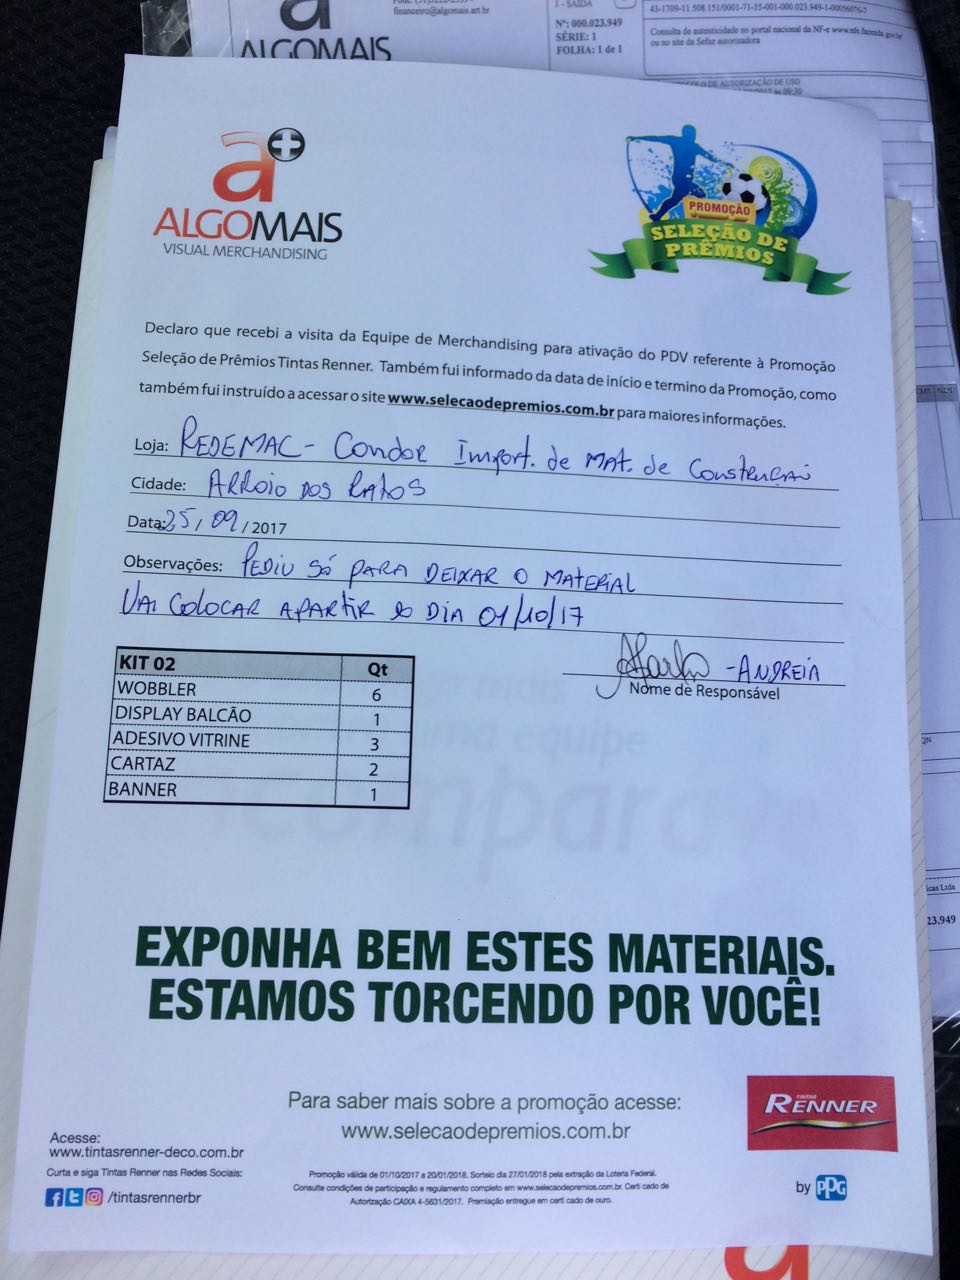 financeiro@algomais.art.br
ALGOMAIS
1 - SAÍDA
Nº: 000.023.949
SÉRIE: 1
FOLHA: 1 de 1
Consulta de autenticidade no portal nacional da NF-e www.nfe.fazenda.gov.br
ou no site da Sefaz autorizadora
a+
ALGOMAIS
VISUAL MERCHANDISING
PROMOÇÃO
SELEÇÃO DE
PRÊMIOS
Declaro que recebi a visita da Equipe de Merchandising para ativação do PDV referente à Promoção
Seleção de Prêmios Tintas Renner. Também fui informado da data de início e termino da Promoção, como
também fui instruído a acessar o site www.selecaodepremios.com.br para maiores informações.
Loja: REDEMAC - Condor Import. de Mat. de Construção
Cidade: ARROIO DOS RATOS
Data: 25/09/2017
Observações: PEDIU SÓ PARA DEIXAR O MATERIAL
VAI COLOCAR APARTIR DO DIA 01/10/17
- ANDREIA
Nome de Responsável
KIT 02 Qt
WOBBLER 6
DISPLAY BALCÃO 1
ADESIVO VITRINE 3
CARTAZ 2
BANNER 1
EXPONHA BEM ESTES MATERIAIS.
ESTAMOS TORCENDO POR VOCÊ!
Para saber mais sobre a promoção acesse:
www.selecaodepremios.com.br
TINTAS
RENNER
by PPG
Acesse:
www.tintasrenner-deco.com.br
Curta e siga Tintas Renner nas Redes Sociais:
/tintasrennerbr
Promoção válida de 01/10/2017 a 20/01/2018. Sorteio dia 27/01/2018 pela extração da Loteria Federal.
Consulte condições de participação e regulamento completo em www.selecaodepremios.com.br. Certi cado de
Autorização CAIXA 4-5631/2017. Premiação entregue em certi cado de ouro.
23.949